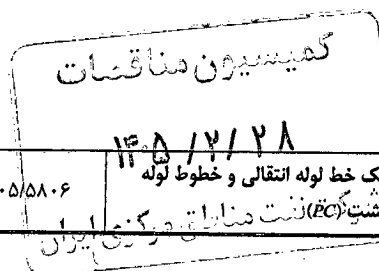 کمیسیون مناقصات
۱۴۰۵/۲/۲۸
ک خط لوله انتقالی و خطوط لوله
۰۵/۵۸۰۶
شت (PC)
مناطق مرکزی ایران